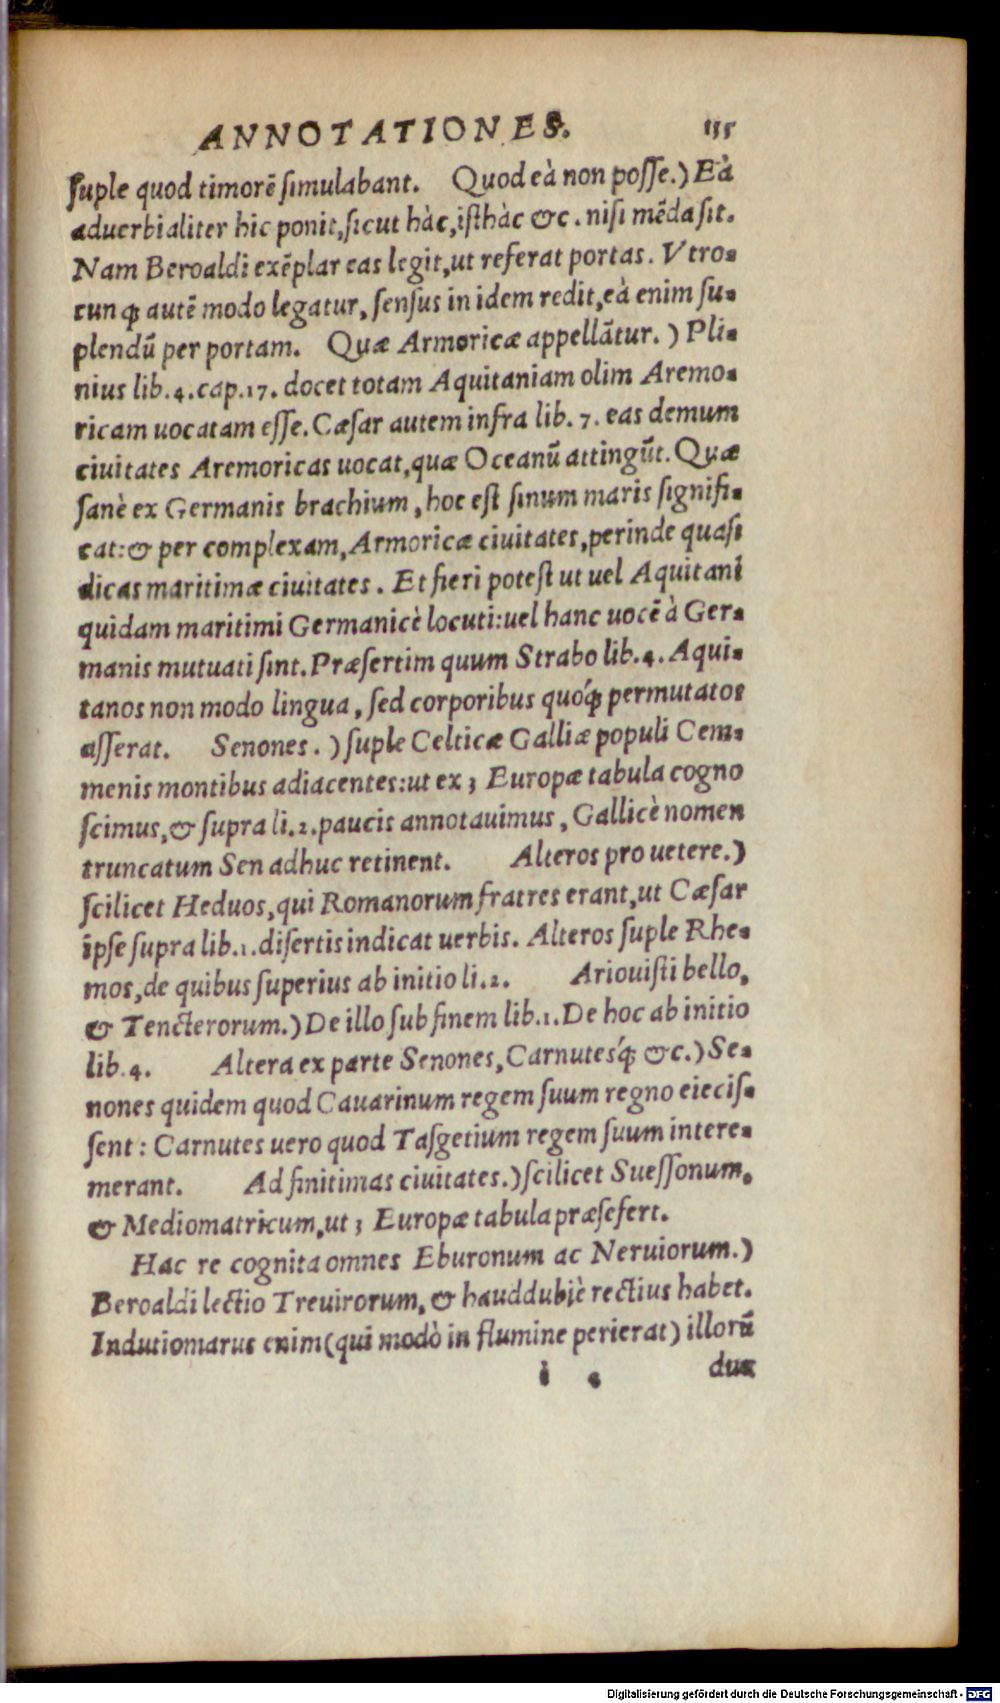 ANNOTATIONES. 135
ſuple quod timorē ſimulabant. Quod eà non poſſe.) Eà
aduerbialiter hic ponit, ſicut hàc, iſthàc &c. niſi mēda ſit.
Nam Beroaldi exēplar eas legit, ut referat portas. Vtro-
cunqꝫ autē modo legatur, ſenſus in idem redit, eà enim ſu-
plendū per portam. Quæ Armoricæ appellātur.) Pli-
nius lib. 4. cap. 17. docet totam Aquitaniam olim Aremo-
ricam uocatam eſſe. Cæſar autem infra lib. 7. eas demum
ciuitates Aremoricas uocat, quæ Oceanū attingūt. Quæ
ſanè ex Germanis brachium, hoc eſt ſinum maris ſignifi-
cat: & per complexam, Armoricæ ciuitates, perinde quaſi
dicas maritimæ ciuitates. Et fieri poteſt ut uel Aquitani
quidam maritimi Germanicè locuti: uel hanc uocē à Ger-
manis mutuati ſint. Præſertim quum Strabo lib. 4. Aqui-
tanos non modo lingua, ſed corporibus quoqꝫ́ permutatos
aſſerat. Senones.) ſuple Celticæ Galliæ populi Cem-
menis montibus adiacentes: ut ex 3 Europæ tabula cogno
ſcimus, & ſupra li. 2. paucis annotauimus, Gallicè nomen
truncatum Sen adhuc retinent. Alteros pro uetere.)
ſcilicet Heduos, qui Romanorum fratres erant, ut Cæſar
ipſe ſupra lib. 1. diſertis indicat uerbis. Alteros ſuple Rhe-
mos, de quibus ſuperius ab initio li. 2. Ariouiſti bello,
& Tencterorum.) De illo ſub finem lib. 1. De hoc ab initio
lib. 4. Altera ex parte Senones, Carnutesqꝫ́ &c.) Se-
nones quidem quod Cauarinum regem ſuum regno eieciſ-
ſent: Carnutes uero quod Taſgetium regem ſuum intere-
merant. Ad finitimas ciuitates.) ſcilicet Sueſſonum,
& Mediomatricum, ut 3 Europæ tabula præſefert.
Hac re cognita omnes Eburonum ac Neruiorum.)
Beroaldi lectio Treuirorum, & hauddubiè rectius habet.
Indutiomarus enim (qui modò in flumine perierat) illorū
i dux
Digitalisierung gefördert durch die Deutsche Forschungsgemeinschaft - DFG